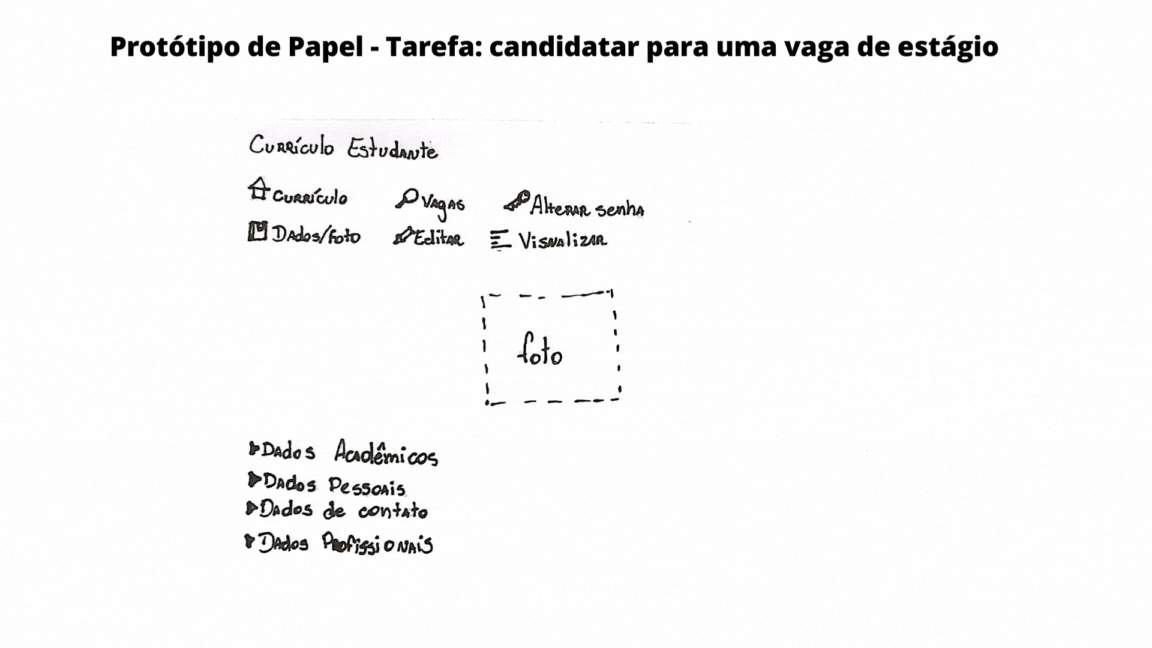 Protótipo de Papel - Tarefa: candidatar para uma vaga de estágio
Currículo Estudante
Currículo Vagas Alterar senha
Dados/foto Editar Visualizar
foto
Dados Acadêmicos
Dados Pessoais
Dados de contato
Dados Profissionais